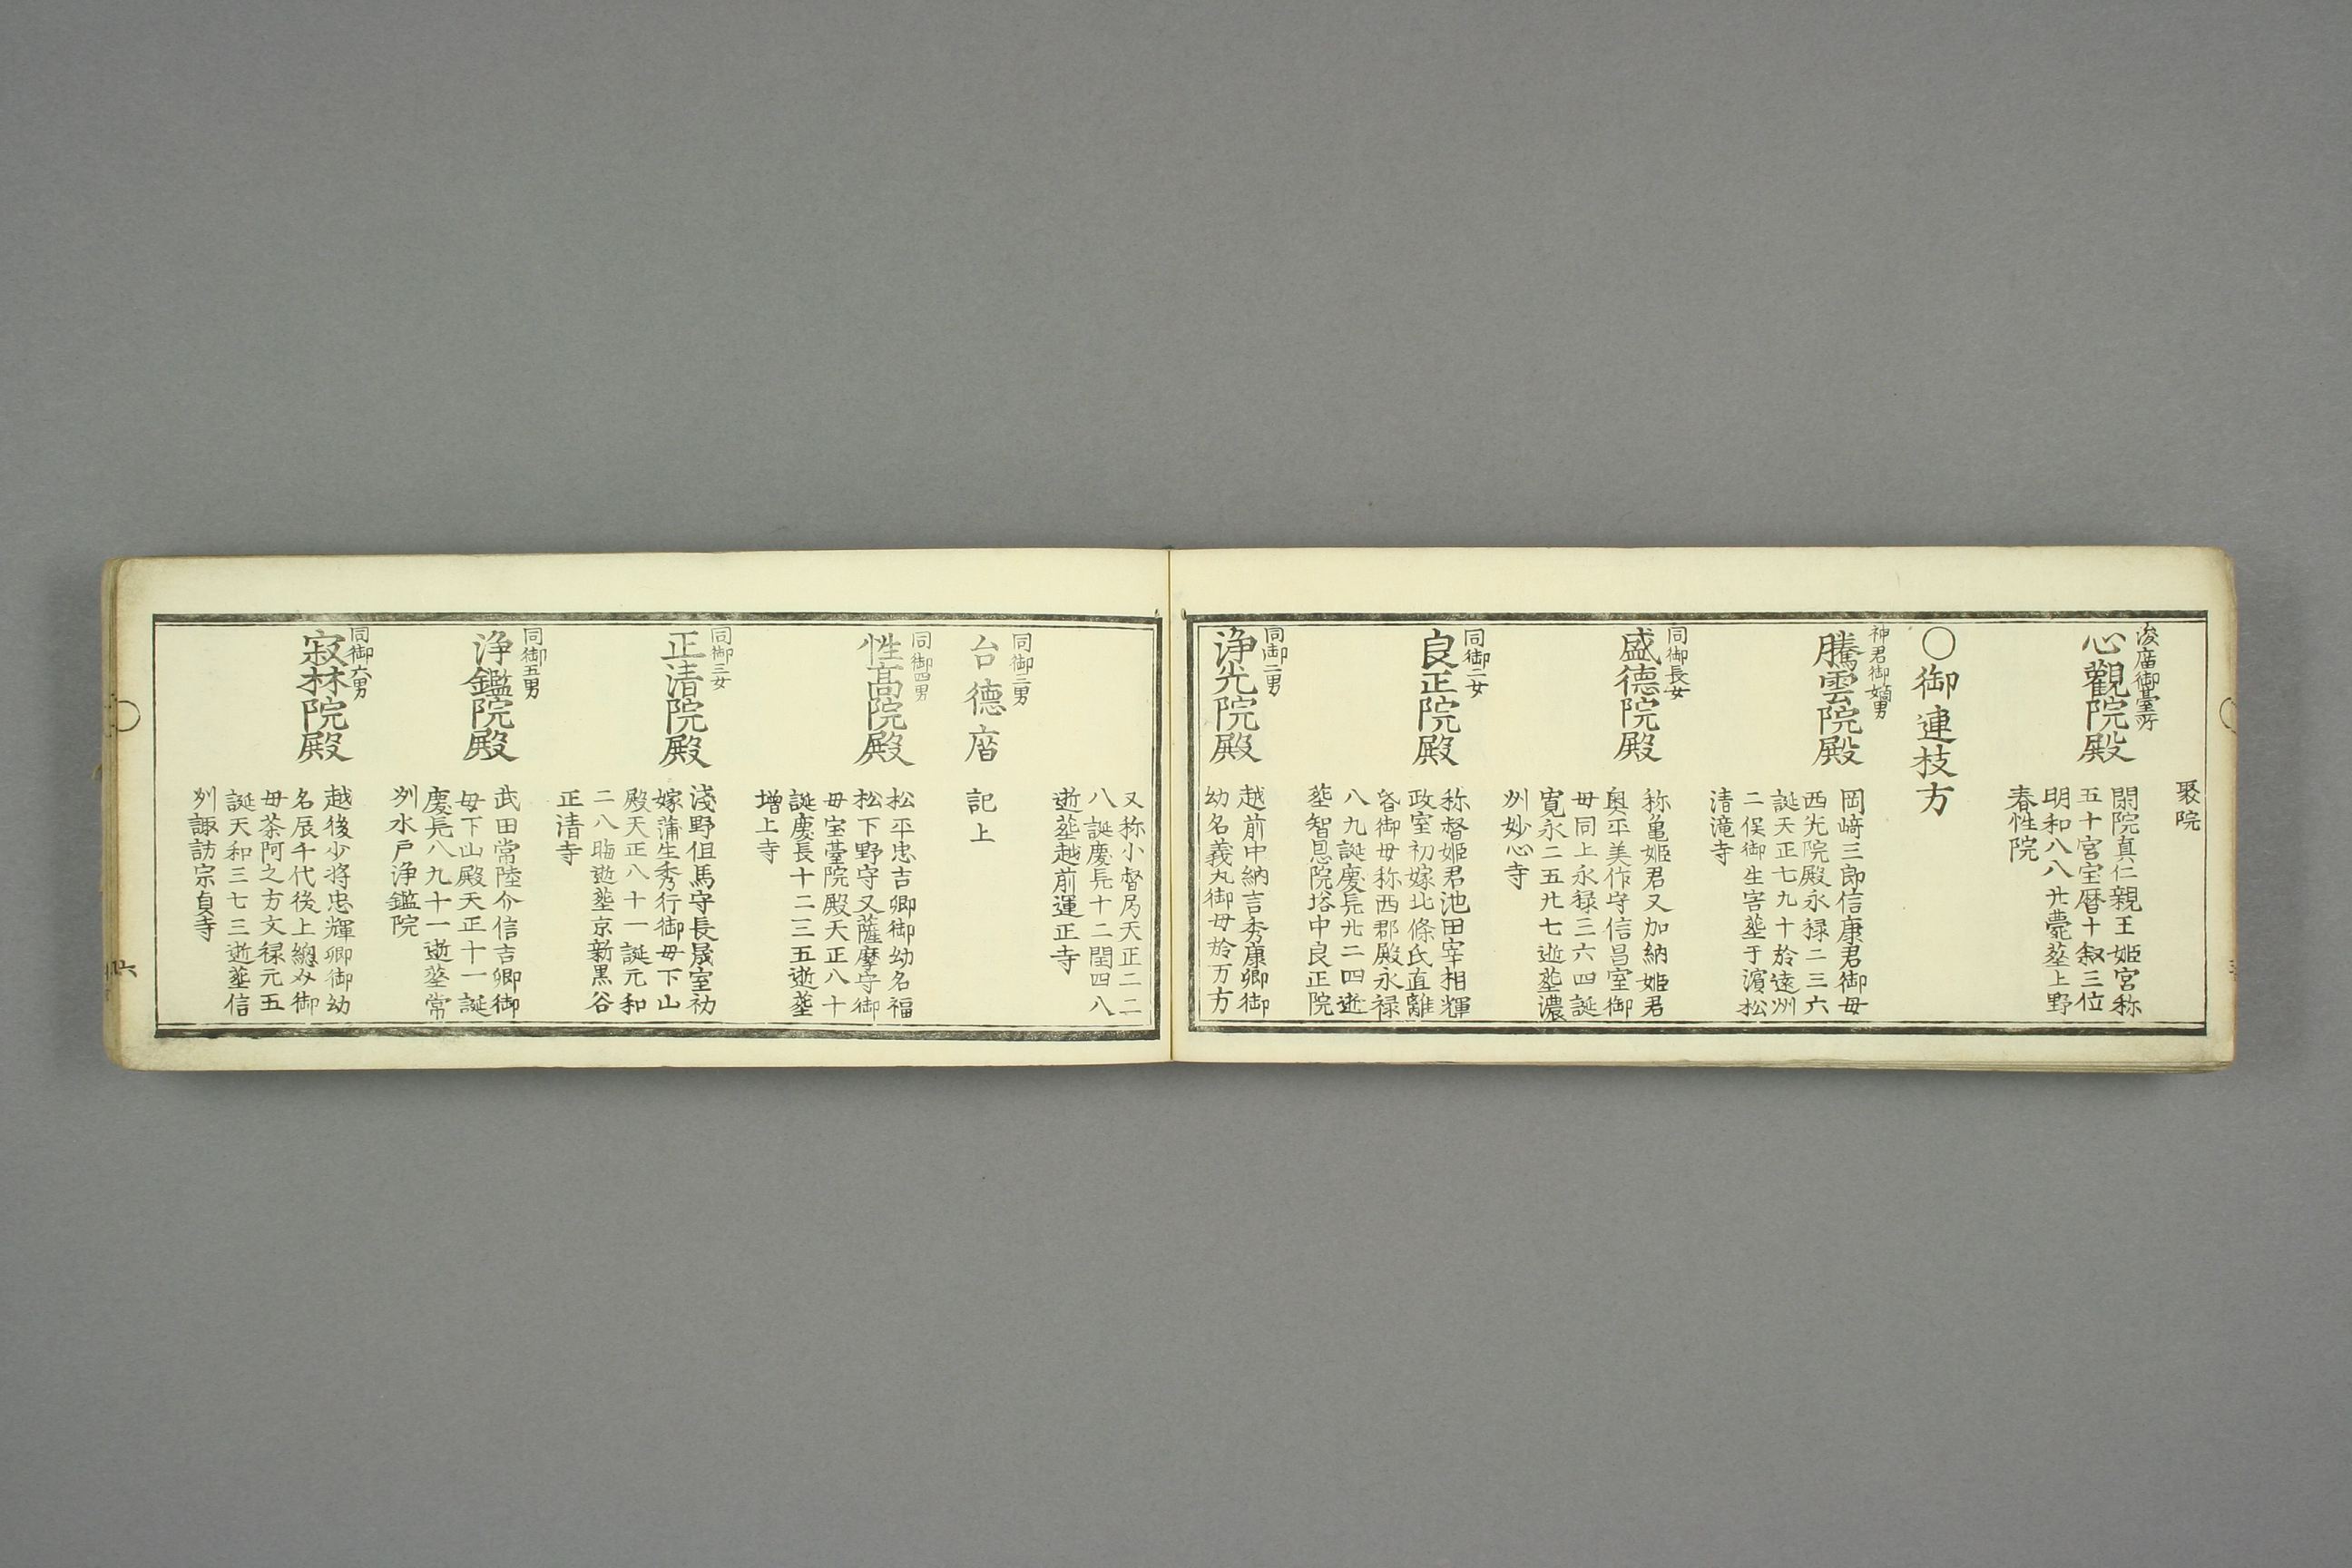 聚院
浚廟御臺所
心觀院殿
閑院真仁親王姫宮称
五十宮宝暦十叙三位
明和八八廿薨葬上野
春性院
〇御連枝方
神君御嫡男
騰雲院殿
岡﨑三郎信康君御母
西光院殿永禄二三六
誕天正七九十於遠州
二俣御生害葬于濱松
清滝寺
同御長女
盛德院殿
称亀姫君又加納姫君
奥平美作守信昌室御
母同上永禄三六四誕
寛永二五九七逝葬濃
州妙心寺
同御二女
良正院殿
称督姫君池田宰相輝
政室初嫁北條氏直離
昏御母称西郡殿永禄
八九誕慶長廿二四逝
葬智恩院塔中良正院
同御二男
浄光院殿
越前中納言秀康卿御
幼名義丸御母於万方
又称小督局天正二二
八誕慶長十二閏四八
逝葬越前運正寺
同御三男
台德庿
記上
同御四男
性高院殿
松平忠吉卿御幼名福
松下野守又薩摩守御
母宝臺院殿天正八十
誕慶長十二三五逝葬
増上寺
同御三女
正清院殿
淺野但馬守長晟室初
嫁蒲生秀行御母下山
殿天正八十一誕元和
二八晦逝葬京新黒谷
正清寺
同御五男
浄鑑院殿
武田常陸介信吉卿御
母下山殿天正十一誕
慶長八九十一逝葬常
州水戸浄鑑院
同御六男
寂林院殿
越後少将忠輝卿御幼
名辰千代後上總介御
母茶阿之方文禄元五
誕天和三七三逝葬信
州諏訪宗貞寺
六